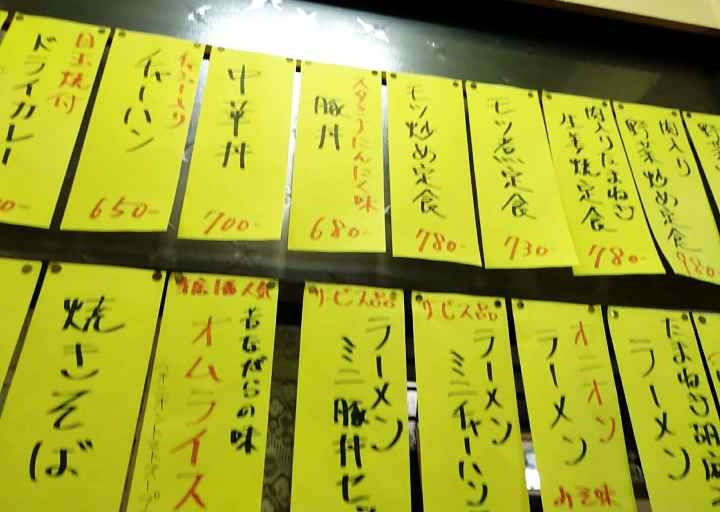 目玉焼付
ドライカレー
チャーシュー入り
チャーハン
650-
中華丼
700-
スタミナにんにく味
豚丼
680-
モツ炒め定食
780-
モツ煮定食
730-
肉入りたまねぎ
生姜焼定食
780-
肉入り
野菜炒め定食
980-
野菜
焼きそば
人気
昔ながらの味
オムライス
サービス品
ラーメン
ミニ豚丼セ
サービス品
ラーメン
ミニチャーハン
オニオン
ラーメン
たまねぎ
ラーメン